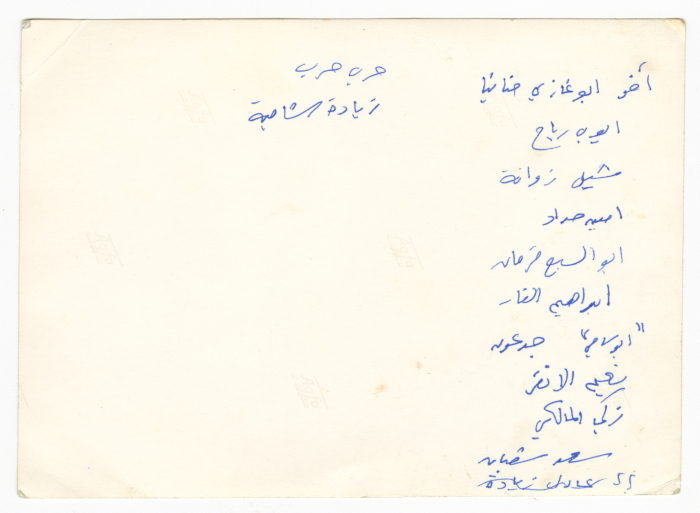 أخو ابو غازي حنانيا
ايوب رباح
مشيل زوانة
امين حداد
ابو السبع فرمان
ابراهيم الفار
"ابو سامي" جدعون
نعيم الاقر
زكي المالكي
سعد شعبان
عادل زيادة
حرب حرب
زيادة الشامية